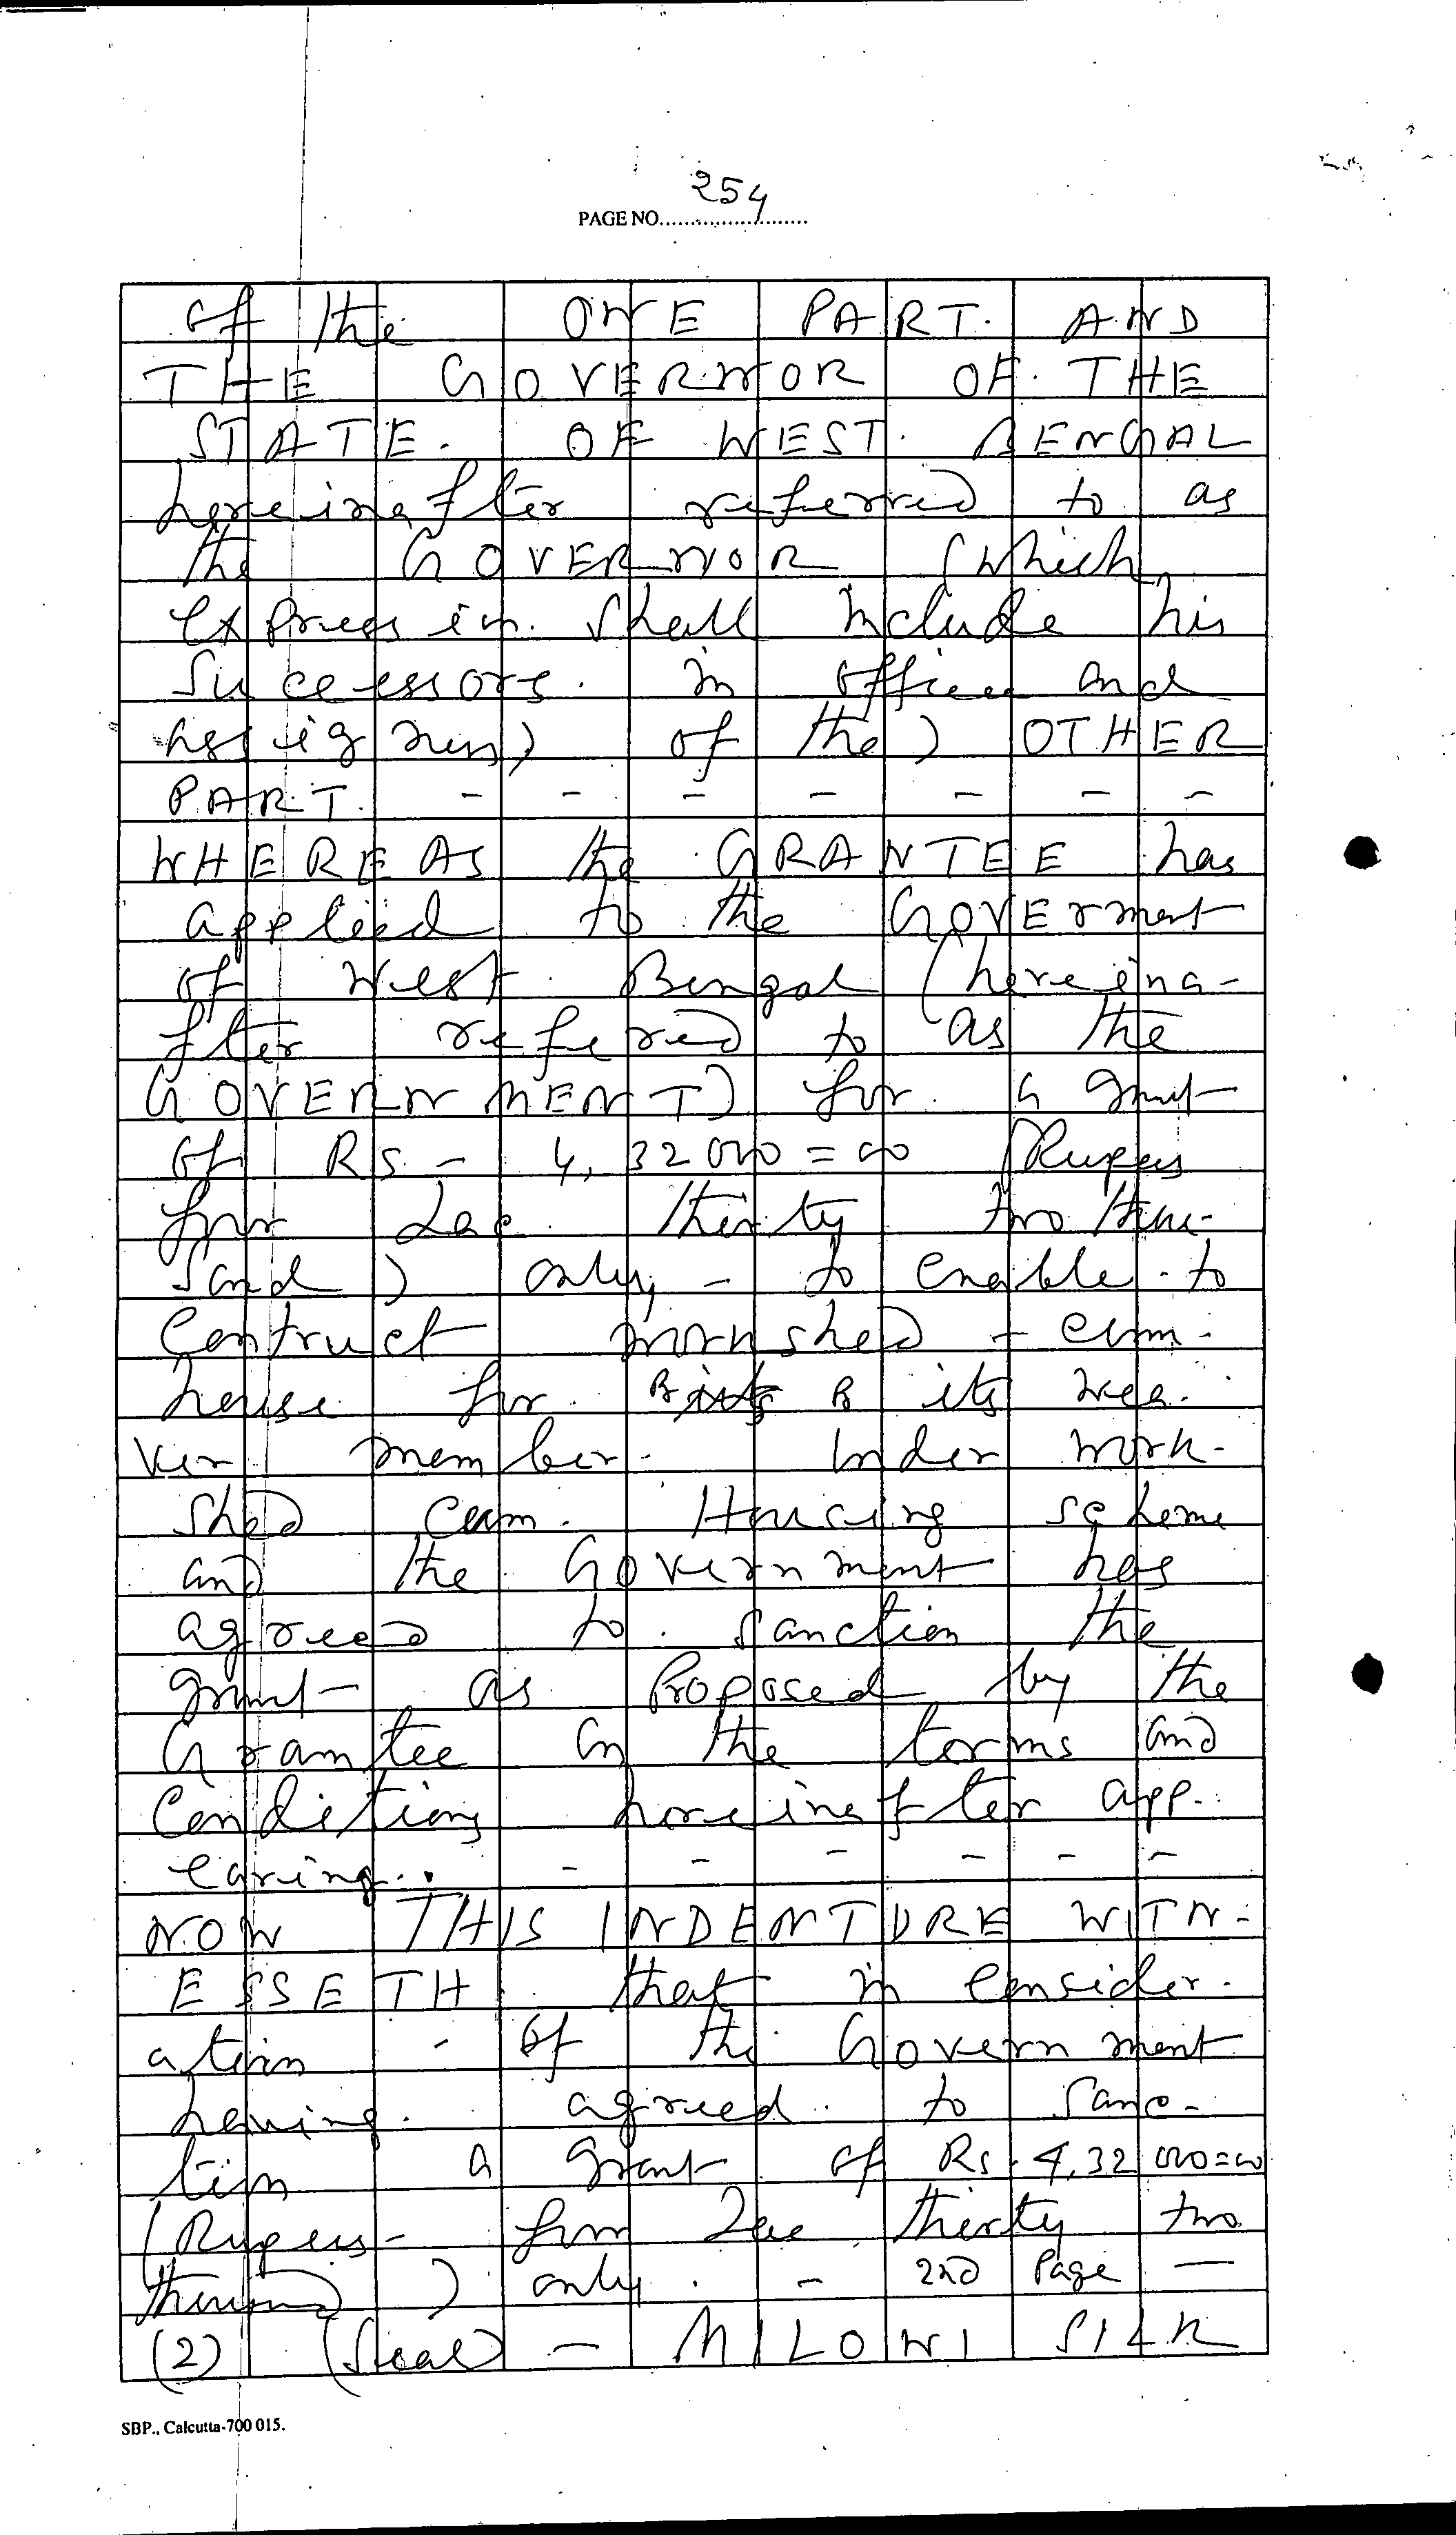 254
PAGE NO........................
of the ONE PART. AND
THE GOVERNOR OF THE
STATE. OF WEST. BENGAL
hereinafter referred to as
the GOVERNOR (which
expression shall include his
Successors. in office and
assigness) of the) OTHER
PART. - - - - - - -
WHEREAS the GRANTEE has
applied to the GOVERment
of West Bengal (hereina-
fter referred to as the
GOVERNMENT) for a grant
of RS - 4,32000=00 (Rupees
four Lac thirty two thou-
sand) only - to enable to
Contruct workshed - cum -
house for its wea-
ver member. Under work-
shed cum. Housing scheme
and the Government has
agreed to sanction the
grant - as Proposed by the
Grantee on the terms and
Conditions hereinafter app-
earing. - - - - - -
NOW THIS INDENTURE WITN-
ESSETH that in consider-
ation - of the Government
having agreed to Sanc-
tion a grant of Rs. 4,32000=00
(Rupees - four Lac thirty two
thousand) only. - 2nd Page -
(2) (Seal) - MILONI SILK
SBP., Calcutta-700 015.